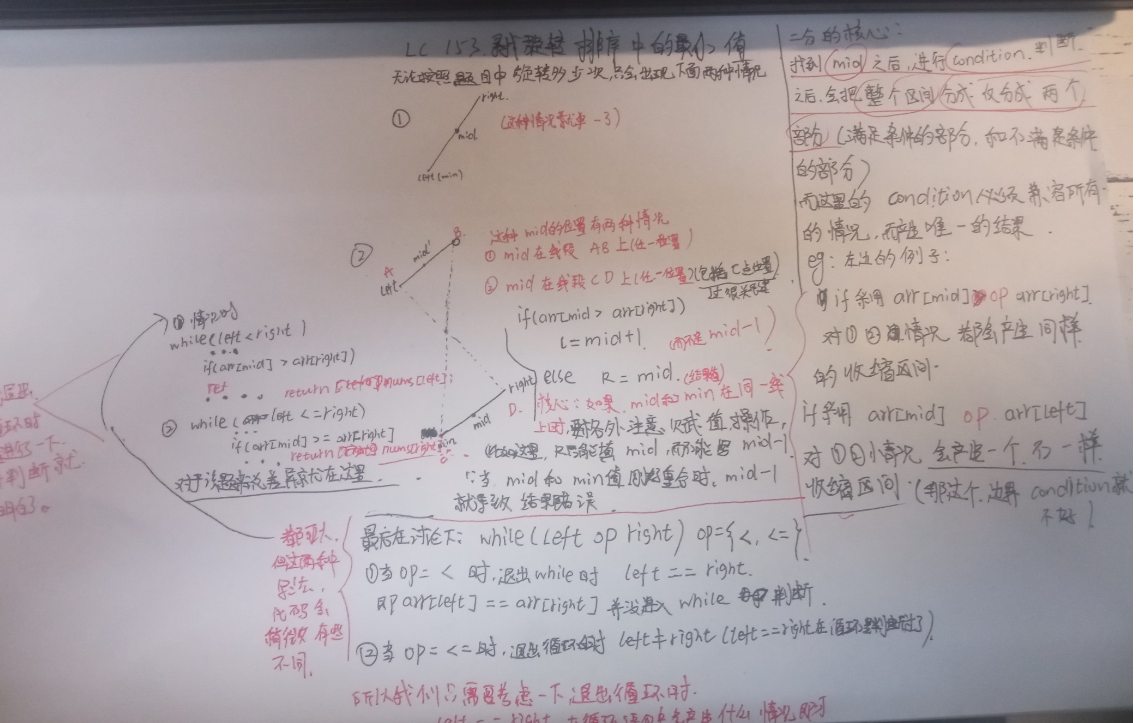 LC 153. 旋转排序中的最小值
无论按照题目中旋转多少次,只会出现下面两种情况
①
right.
mid
left(min)
(这种情况就单一3)
②
A
left
mid'
B.
这种mid的位置有两种情况
① mid在线段 AB 上(任一位置)
② mid在线段CD上(任一位置)(包括C点位置)
if(arr[mid > arr[right])
l=mid+1. (而不是mid-1)
else R = mid.
right
D.
mid
min
核心:如果 mid和min在同一线
上时,要格外注意,
R只能填 mid,而不能是 mid-1.
∵当 mid和min值 重合时, mid-1
就导致 结果错误.
① 情况时
while(left<right)
if(arr[mid] > arr[right])
return nums[left];
② while( left <=right)
if(arr[mid] >= arr[right]
return nums[right]
对于该题来说差异就在这里
都可以,
但这两种
写法,
代码会
稍微 有些
不同.
最后在讨论下: while(left op right) op={<, <=}
①当 op= < 时,退出while时 left == right.
即 arr[left] == arr[right] 并没进入 while 判断.
②当 op= <= 时,退出循环的时 left≠right (left==right在循环里判断过了).
所以我们只需要考虑一下,退出循环时.
left == right 在循环
会产生什么 情况 即可
二分的核心:
找到 mid 之后,进行condition.判断.
之后.会把整个区间分成 仅分成 两个
部分(满足条件的部分,和不满足条件
的部分)
而这里的 condition必须 兼容所有
的情况,而产生唯一的结果.
eg: 左边的例子:
if 采用 arr[mid] op arr[right].
对①②情况 都会产生同样
的收缩区间.
if 采用 arr[mid] op. arr[left]
对①②小情况 会产生一个.不一样.
收缩区间. (那这个.边界 condition就
不好)
退出
判断就